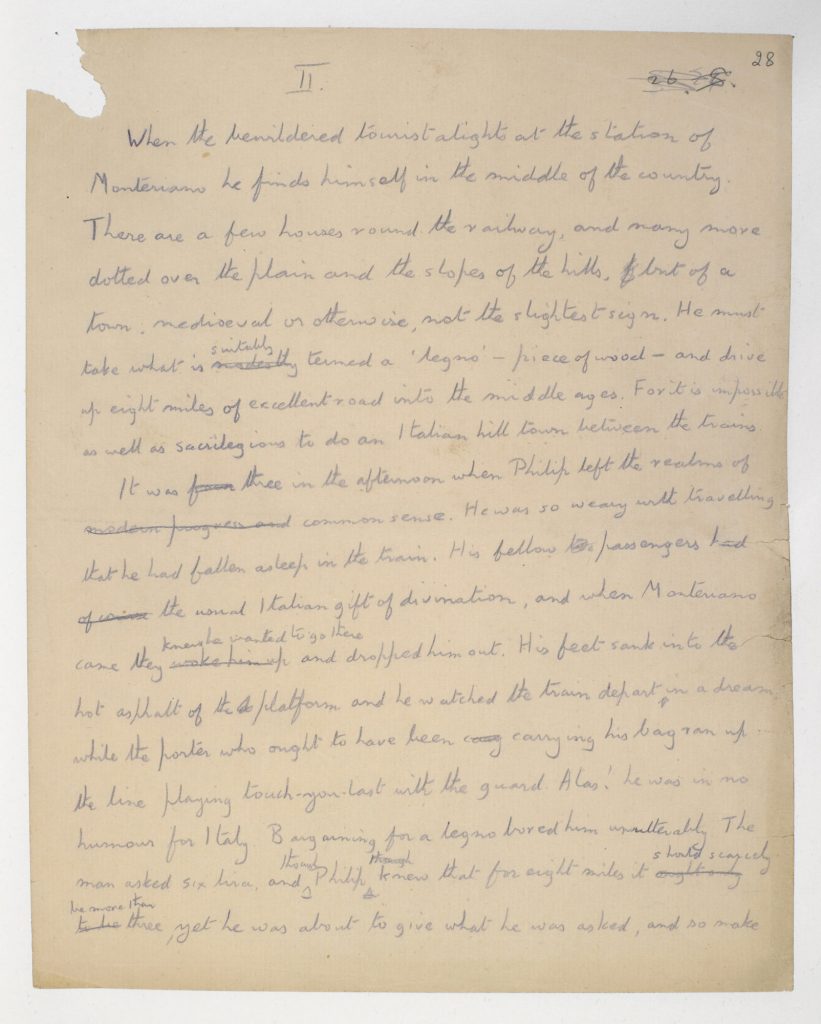 28
II.
26.
When the bewildered tourist alights at the station of
Monteriano he finds himself in the middle of the country.
There are a few houses round the railway, and many more
dotted over the plain and the slopes of the hills, but of a
town, mediaeval or otherwise, not the slightest sign. He must
suitably
take what is modestly termed a 'legno' – piece of wood – and drive
up eight miles of excellent road into the middle ages. For it is impossible
as well as sacrilegious to do an Italian hill town between the trains.
It was four three in the afternoon when Philip left the realms of
modern progress and common sense. He was so weary with travelling
that he had fallen asleep in the train. His fellow passengers had
the usual Italian gift of divination, and when Monteriano
knew he wanted to go there
came they woke him up and dropped him out. His feet sank into the
hot asphalt of the platform and he watched the train depart in a dream,
while the porter who ought to have been carrying his bag ran up
the line playing touch-you-last with the guard. Alas! he was in no
humour for Italy. Bargaining for a legno bored him unutterably. The
though though should scarcely
man asked six lira, and Philip knew that for eight miles it ought only
be more than
to be three, yet he was about to give what he was asked, and so make